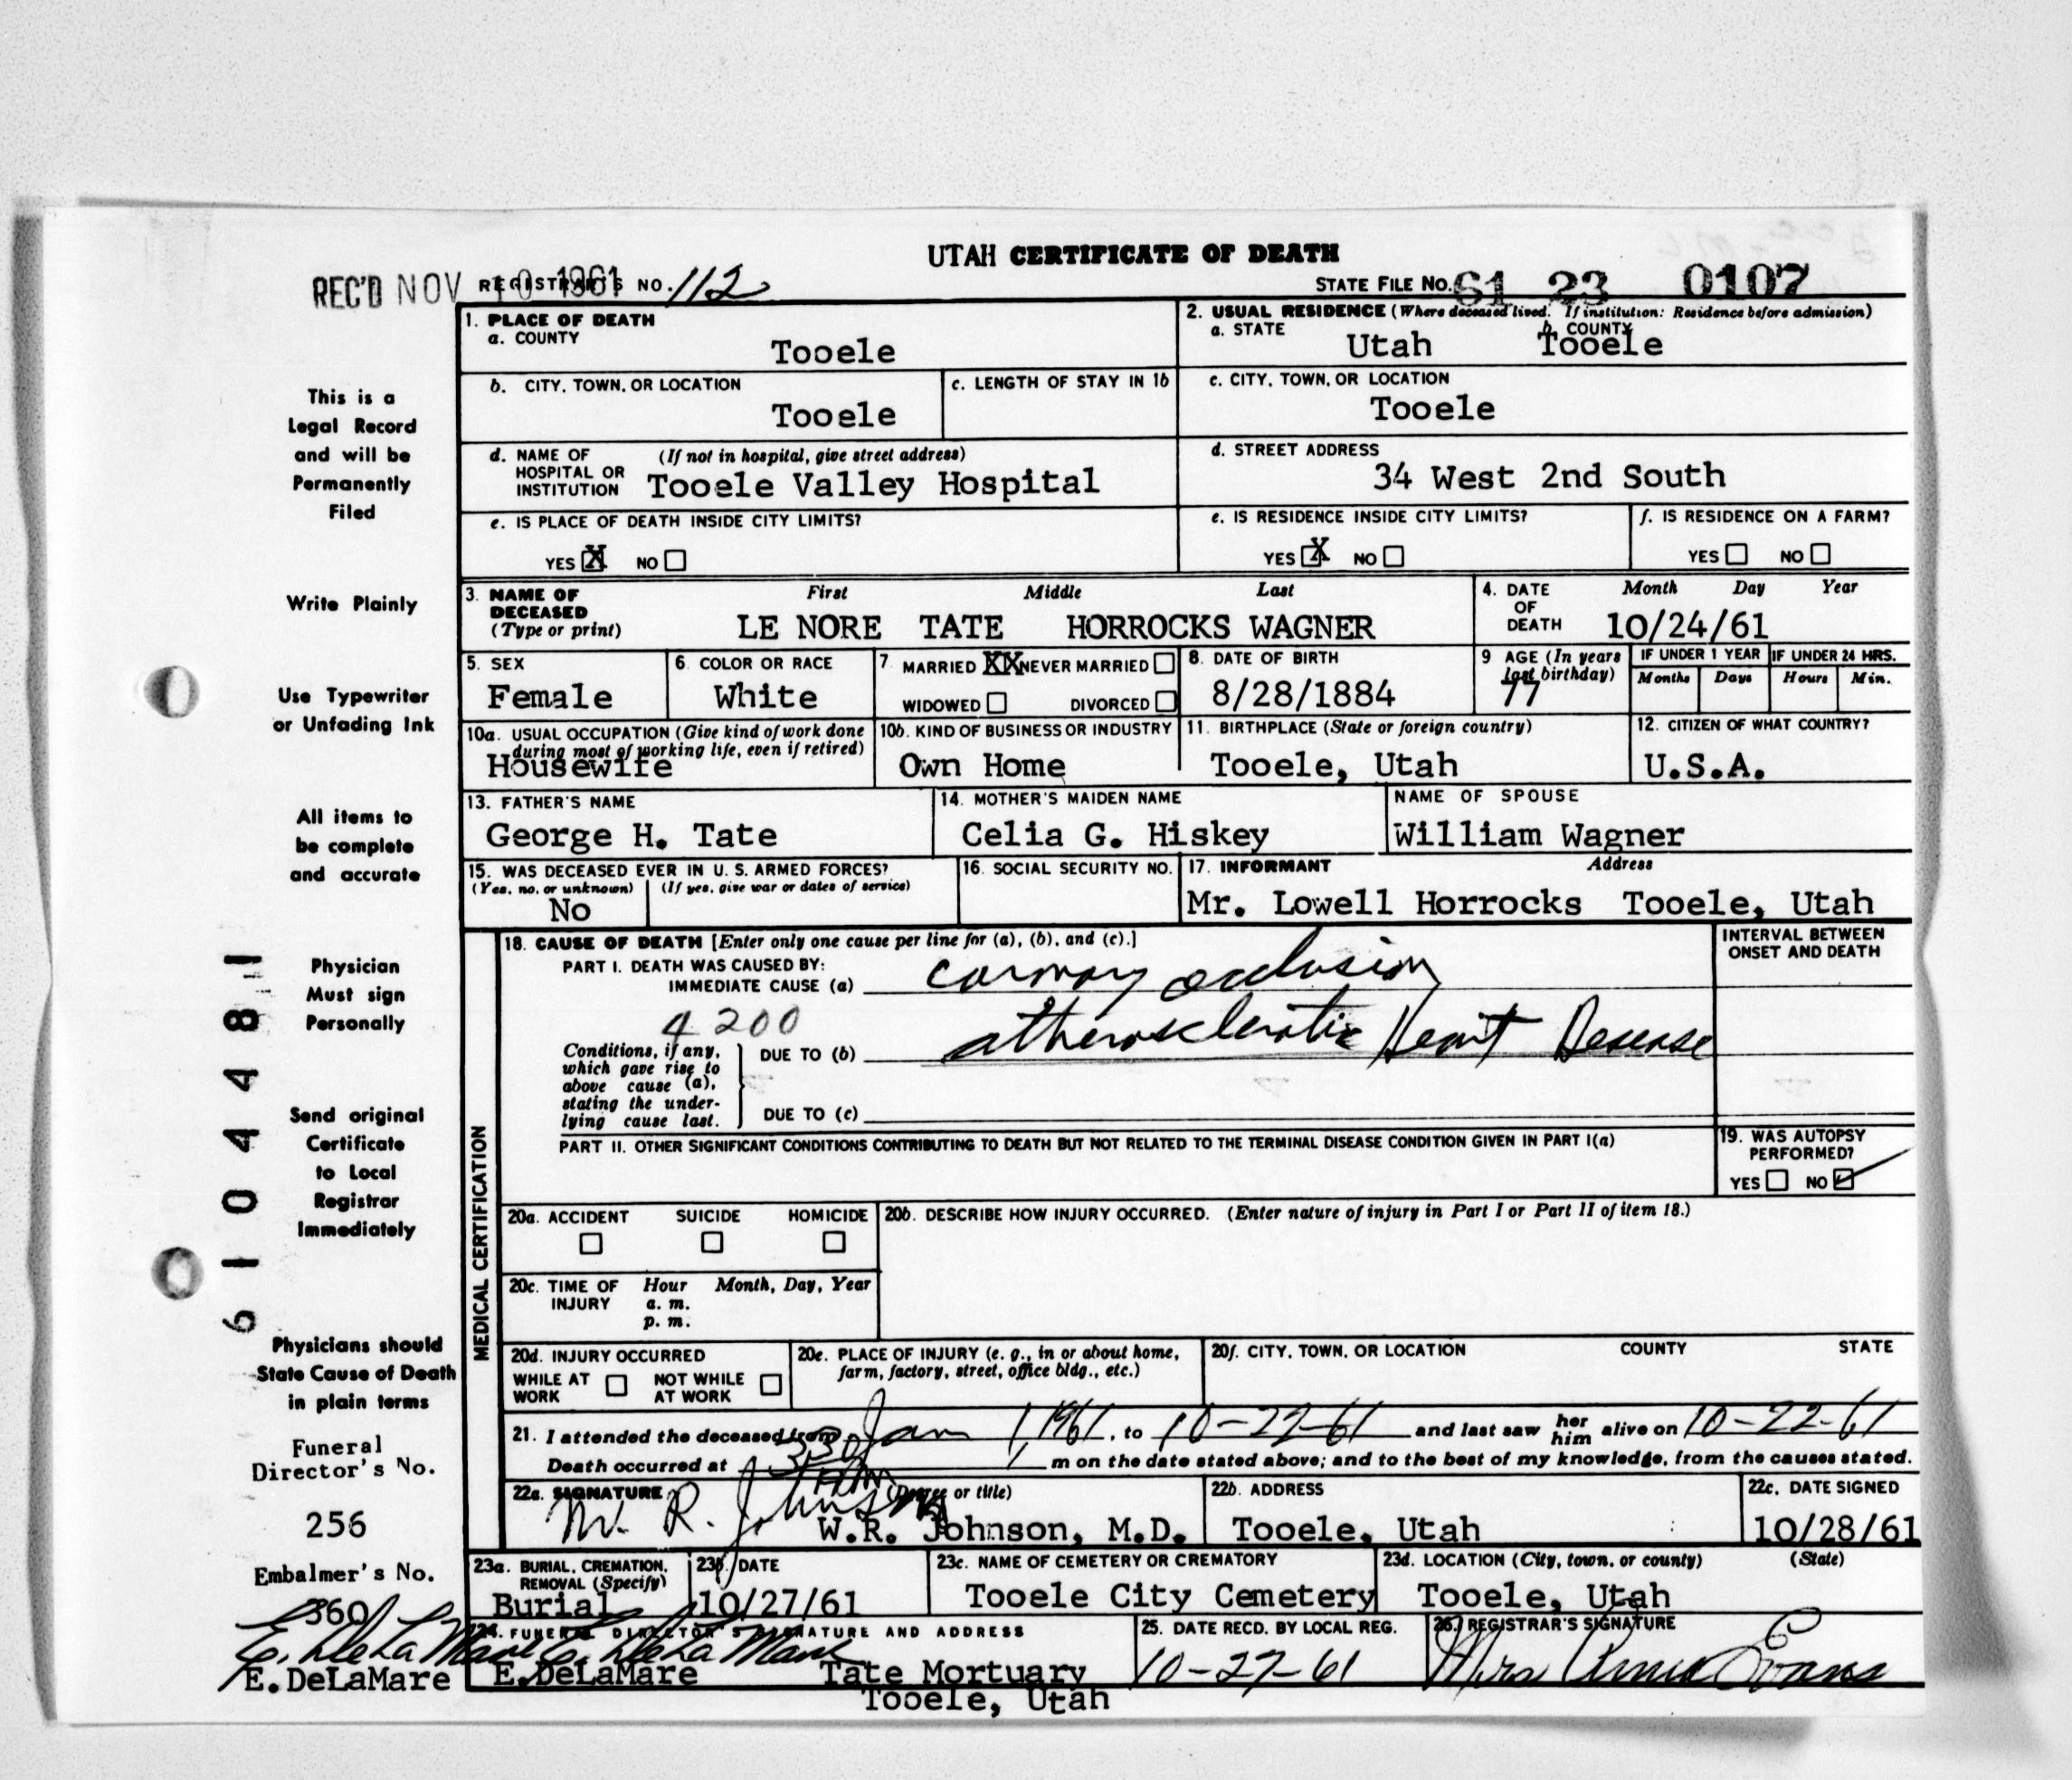 UTAH CERTIFICATE OF DEATH
REC'D NOV 10 1961 REGISTRAR'S NO. 112 STATE FILE No. 61 23 0107
1. PLACE OF DEATH
a. COUNTY
Tooele
2. USUAL RESIDENCE (Where deceased lived. If institution: Residence before admission)
a. STATE Utah b. COUNTY Tooele
b. CITY, TOWN, OR LOCATION
Tooele
c. LENGTH OF STAY IN 1b
c. CITY, TOWN, OR LOCATION
Tooele
d. NAME OF HOSPITAL OR INSTITUTION (If not in hospital, give street address)
Tooele Valley Hospital
d. STREET ADDRESS
34 West 2nd South
e. IS PLACE OF DEATH INSIDE CITY LIMITS?
YES X NO
e. IS RESIDENCE INSIDE CITY LIMITS?
YES X NO
f. IS RESIDENCE ON A FARM?
YES NO
3. NAME OF DECEASED (Type or print)
First Middle Last
LE NORE TATE HORROCKS WAGNER
4. DATE OF DEATH Month Day Year
10/24/61
5. SEX
Female
6. COLOR OR RACE
White
7. MARRIED XX NEVER MARRIED
WIDOWED DIVORCED
8. DATE OF BIRTH
8/28/1884
9 AGE (In years last birthday)
77
IF UNDER 1 YEAR
Months Days
IF UNDER 24 HRS.
Hours Min.
10a. USUAL OCCUPATION (Give kind of work done during most of working life, even if retired)
Housewife
10b. KIND OF BUSINESS OR INDUSTRY
Own Home
11. BIRTHPLACE (State or foreign country)
Tooele, Utah
12. CITIZEN OF WHAT COUNTRY?
U.S.A.
13. FATHER'S NAME
George H. Tate
14. MOTHER'S MAIDEN NAME
Celia G. Hiskey
NAME OF SPOUSE
William Wagner
15. WAS DECEASED EVER IN U. S. ARMED FORCES?
(Yes, no, or unknown) (If yes, give war or dates of service)
No
16. SOCIAL SECURITY NO.
17. INFORMANT Address
Mr. Lowell Horrocks Tooele, Utah
MEDICAL CERTIFICATION
18. CAUSE OF DEATH [Enter only one cause per line for (a), (b), and (c).]
PART I. DEATH WAS CAUSED BY:
IMMEDIATE CAUSE (a) coronary occlusion
4200
Conditions, if any, which gave rise to above cause (a), stating the underlying cause last.
DUE TO (b) atherosclerotic Heart Disease
DUE TO (c)
INTERVAL BETWEEN ONSET AND DEATH
PART II. OTHER SIGNIFICANT CONDITIONS CONTRIBUTING TO DEATH BUT NOT RELATED TO THE TERMINAL DISEASE CONDITION GIVEN IN PART I(a)
19. WAS AUTOPSY PERFORMED?
YES NO ✓
20a. ACCIDENT SUICIDE HOMICIDE
20b. DESCRIBE HOW INJURY OCCURRED. (Enter nature of injury in Part I or Part II of item 18.)
20c. TIME OF INJURY Hour Month, Day, Year
a. m.
p. m.
20d. INJURY OCCURRED
WHILE AT WORK NOT WHILE AT WORK
20e. PLACE OF INJURY (e. g., in or about home, farm, factory, street, office bldg., etc.)
20f. CITY, TOWN, OR LOCATION COUNTY STATE
21. I attended the deceased from Jan 1, 1961, to 10-22-61 and last saw her him alive on 10-22-61
Death occurred at 330 PM m on the date stated above; and to the best of my knowledge, from the causes stated.
22a. SIGNATURE (Degree or title)
W. R. Johnson
W.R. Johnson, M.D.
22b. ADDRESS
Tooele, Utah
22c. DATE SIGNED
10/28/61
23a. BURIAL, CREMATION, REMOVAL (Specify)
Burial
23b. DATE
10/27/61
23c. NAME OF CEMETERY OR CREMATORY
Tooele City Cemetery
23d. LOCATION (City, town, or county) (State)
Tooele, Utah
24. FUNERAL DIRECTOR'S SIGNATURE AND ADDRESS
E. DeLaMare
E.DeLaMare Tate Mortuary
Tooele, Utah
25. DATE RECD. BY LOCAL REG.
10-27-61
26. REGISTRAR'S SIGNATURE
Mrs Evans
This is a
Legal Record
and will be
Permanently
Filed
Write Plainly
Use Typewriter
or Unfading Ink
All items to
be complete
and accurate
Physician
Must sign
Personally
Send original
Certificate
to Local
Registrar
Immediately
Physicians should
State Cause of Death
in plain terms
Funeral
Director's No.
256
Embalmer's No.
360
E. DeLaMare
E.DeLaMare
61 04481